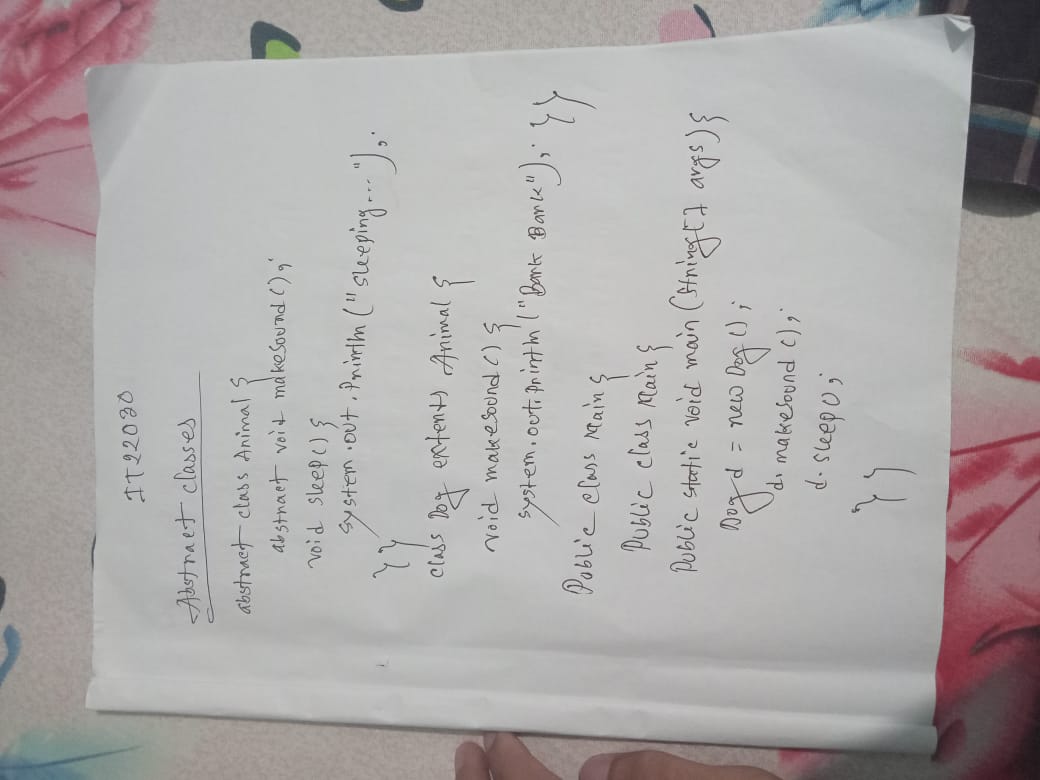 IT22030
Abstract classes
abstract class Animal {
abstract void makesound();
void sleep() {
system.out.println("sleeping...");
}}
class Dog extents Animal {
void makesound() {
system.out.println("Bark Bark"); }}
Public class Main {
Public class Main {
Public static void main (String[] args) {
Dog d = new Dog();
d. makesound();
d. sleep();
}}